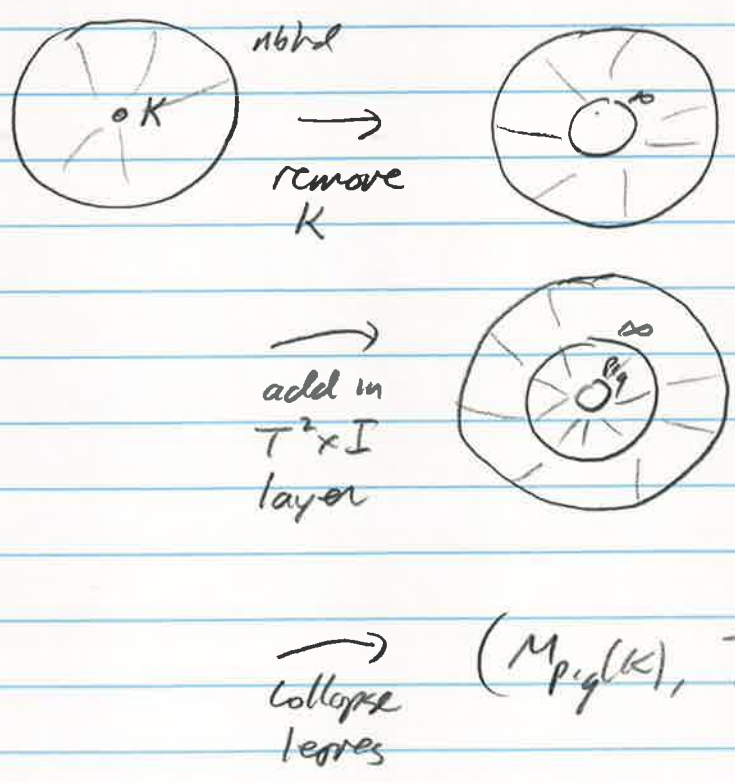 nbhd
K
remove
K
∞
add in
T²×I
layer
∞
p,q
collapse
leaves
(M_{p,q}(K),